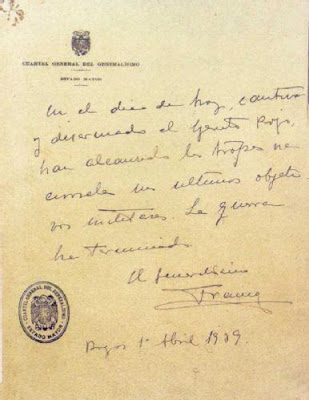 CUARTEL GENERAL DEL GENERALÍSIMO
ESTADO MAYOR
En el día de hoy, cautivo
y desarmado el Ejército Rojo,
han alcanzado las tropas na-
cionales sus ultimos objeti-
vos militares. La guerra
ha terminado.
El Generalísimo
Franco
Burgos 1º Abril 1939.
CUARTEL GENERAL DEL GENERALÍSIMO
ESTADO MAYOR